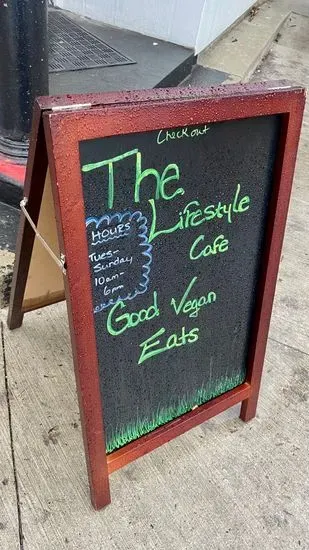 Check out
The
Lifestyle
Cafe
HOURS
Tues-
Sunday
10am-
6pm
Good Vegan
Eats